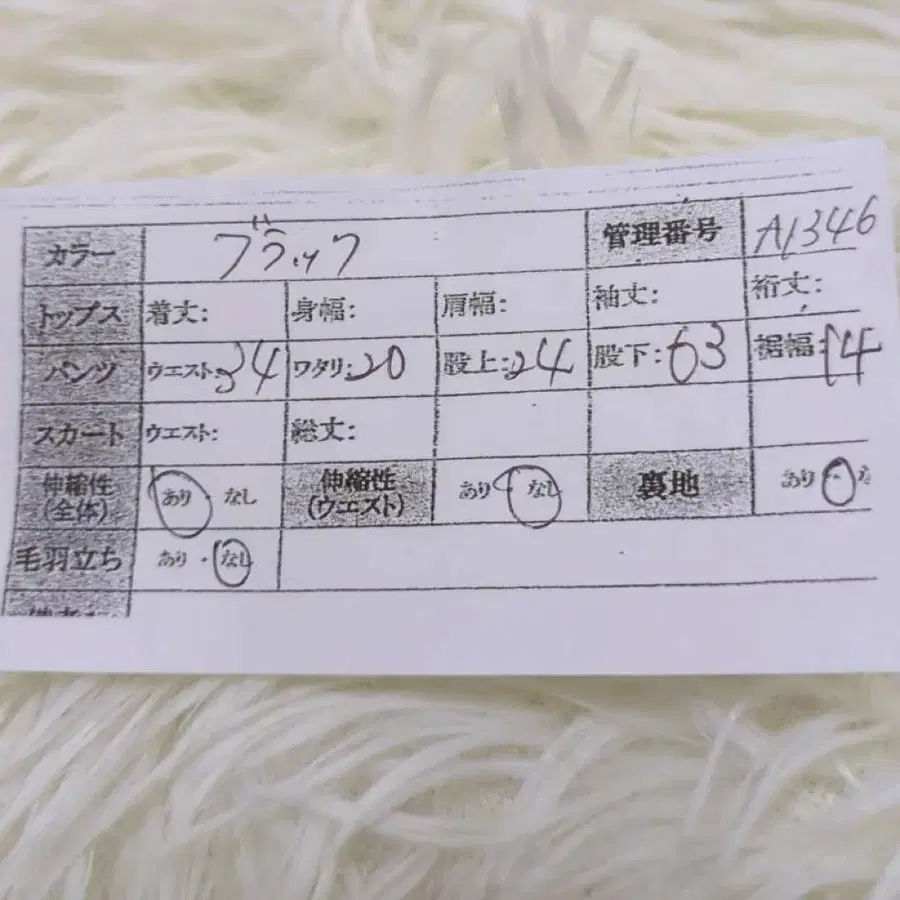 カラー ブラック 管理番号 A1346
トップス 着丈: 身幅: 肩幅: 袖丈: 裄丈:
パンツ ウエスト:34 ワタリ:20 股上:24 股下:63 裾幅:14
スカート ウエスト: 総丈:
伸縮性(全体) あり・なし 伸縮性(ウエスト) あり なし 裏地 あり
毛羽立ち あり・なし